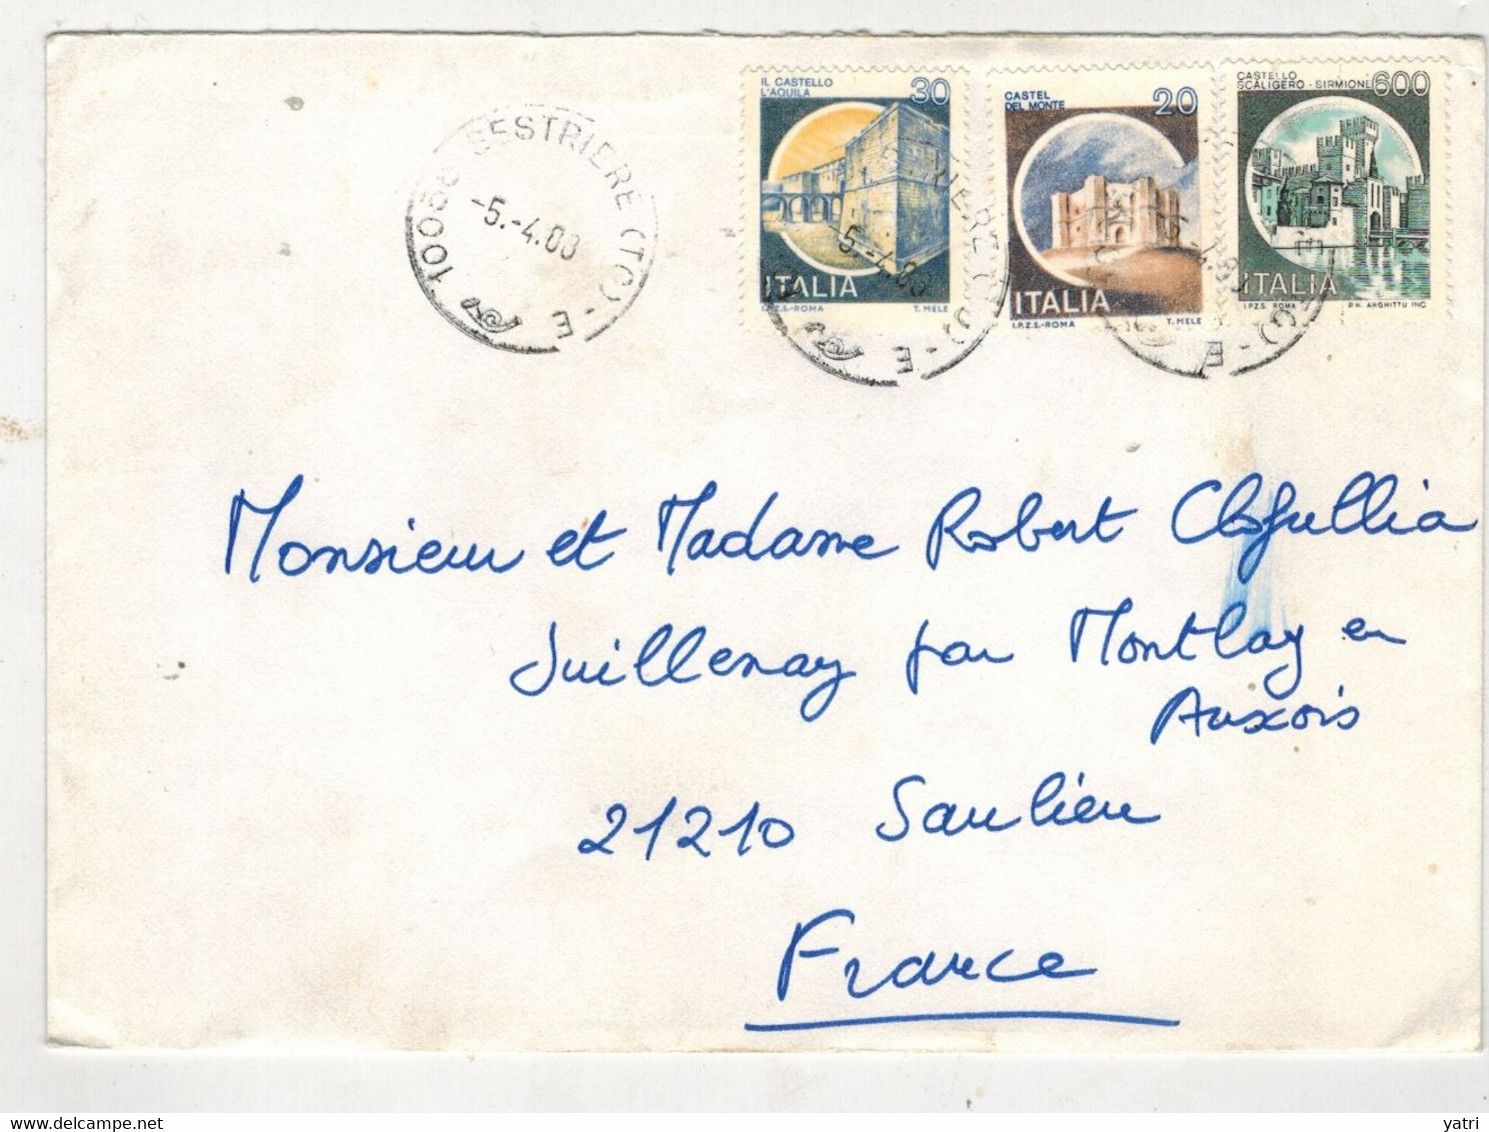 10058 SESTRIERE (TO) - E
-5.-4.88
IL CASTELLO
L'AQUILA
30
ITALIA
I.P.Z.S.-ROMA T. MELE
CASTEL
DEL MONTE
20
ITALIA
I.P.Z.S.-ROMA T. MELE
CASTELLO
SCALIGERO - SIRMIONE
600
ITALIA
I.P.Z.S. ROMA P.N. ARGHITTU INC
Monsieur et Madame Robert
Juillenay par Montlay en
Auxois
21210 Saulieu
France
yatri